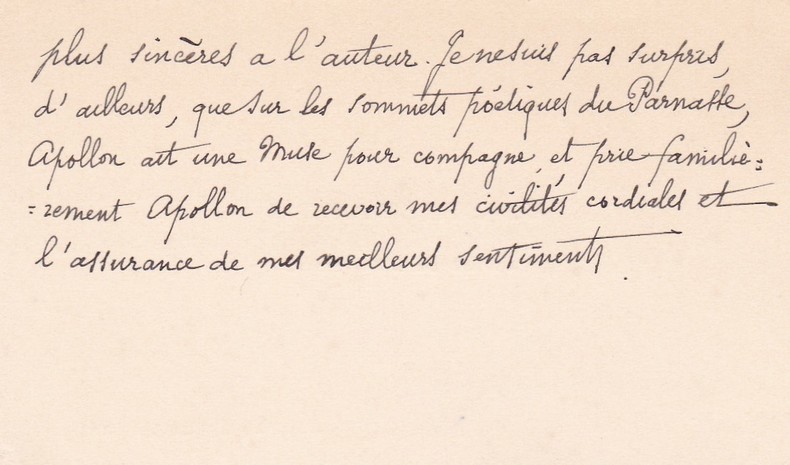 plus sincères a l'auteur. Je ne suis pas surpris,
d'ailleurs, que sur les sommets poétiques du Parnasse,
Apollon ait une Muse pour compagne, et prie familiè=
=rement Apollon de recevoir mes civilités cordiales et
l'assurance de mes meilleurs sentiments.